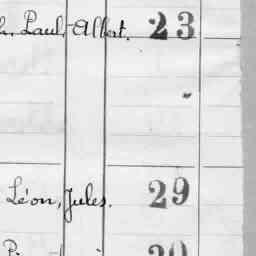 Paul, Albert. 23
Léon, Jules. 29